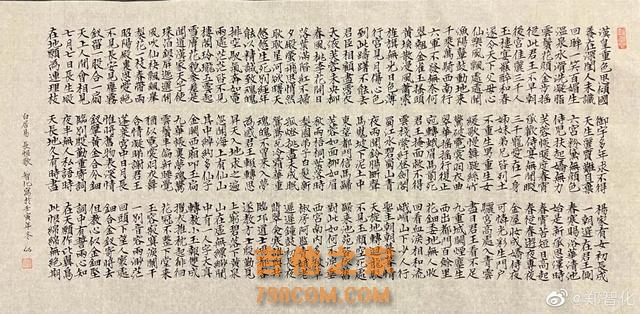 漢皇重色思傾國 御宇多年求不得 楊家有女初長成
養在深閨人未識 天生麗質難自棄 一朝選在君王側
回眸一笑百媚生 六宮粉黛無顏色 春寒賜浴華清池
溫泉水滑洗凝脂 侍兒扶起嬌無力 始是新承恩澤時
雲鬢花顏金步搖 芙蓉帳暖度春宵 春宵苦短日高起
從此君王不早朝 承歡侍宴無閒暇 春從春遊夜專夜
後宮佳麗三千人 三千寵愛在一身 金屋妝成嬌侍夜
玉樓宴罷醉和春 姊妹弟兄皆列土 可憐光彩生門戶
遂令天下父母心 不重生男重生女 驪宮高處入青雲
仙樂風飄處處聞 緩歌慢舞凝絲竹 盡日君王看不足
漁陽鼙鼓動地來 驚破霓裳羽衣曲 九重城闕煙塵生
千乘萬騎西南行 翠華搖搖行復止 西出都門百餘里
六軍不發無奈何 宛轉蛾眉馬前死 花鈿委地無人收
翠翹金雀玉搔頭 君王掩面救不得 回看血淚相和流
黃埃散漫風蕭索 雲棧縈紆登劍閣 峨嵋山下少人行
旌旗無光日色薄 蜀江水碧蜀山青 聖主朝朝暮暮情
行宮見月傷心色 夜雨聞鈴腸斷聲 天旋地轉迴龍馭
到此躊躇不能去 馬嵬坡下泥土中 不見玉顏空死處
君臣相顧盡霑衣 東望都門信馬歸 歸來池苑皆依舊
太液芙蓉未央柳 芙蓉如面柳如眉 對此如何不淚垂
春風桃李花開日 秋雨梧桐葉落時 西宮南內多秋草
落葉滿階紅不掃 梨園弟子白髮新 椒房阿監青娥老
夕殿螢飛思悄然 孤燈挑盡未成眠 遲遲鐘鼓初長夜
耿耿星河欲曙天 鴛鴦瓦冷霜華重 翡翠衾寒誰與共
悠悠生死別經年 魂魄不曾來入夢 臨邛道士鴻都客
能以精誠致魂魄 為感君王輾轉思 遂教方士殷勤覓
排空馭氣奔如電 昇天入地求之遍 上窮碧落下黃泉
兩處茫茫皆不見 忽聞海上有仙山 山在虛無縹緲間
樓閣玲瓏五雲起 其中綽約多仙子 中有一人字太真
雪膚花貌參差是 金闕西廂叩玉扃 轉教小玉報雙成
聞道漢家天子使 九華帳裏夢魂驚 攬衣推枕起徘徊
珠箔銀屏迤邐開 雲鬢半偏新睡覺 花冠不整下堂來
風吹仙袂飄飄舉 猶似霓裳羽衣舞 玉容寂寞淚闌干
梨花一枝春帶雨 含情凝睇謝君王 一別音容兩渺茫
昭陽殿裏恩愛絕 蓬萊宮中日月長 回頭下望人寰處
不見長安見塵霧 惟將舊物表深情 鈿合金釵寄將去
釵留一股合一扇 釵擘黃金合分鈿 但教心似金鈿堅
天上人間會相見 臨別殷勤重寄詞 詞中有誓兩心知
七月七日長生殿 夜半無人私語時 在天願作比翼鳥
在地願為連理枝 天長地久有時盡 此恨綿綿無絕期
白居易 長恨歌 智化寫於壬寅年冬
吉他之家
798COM.COM
@郑智化